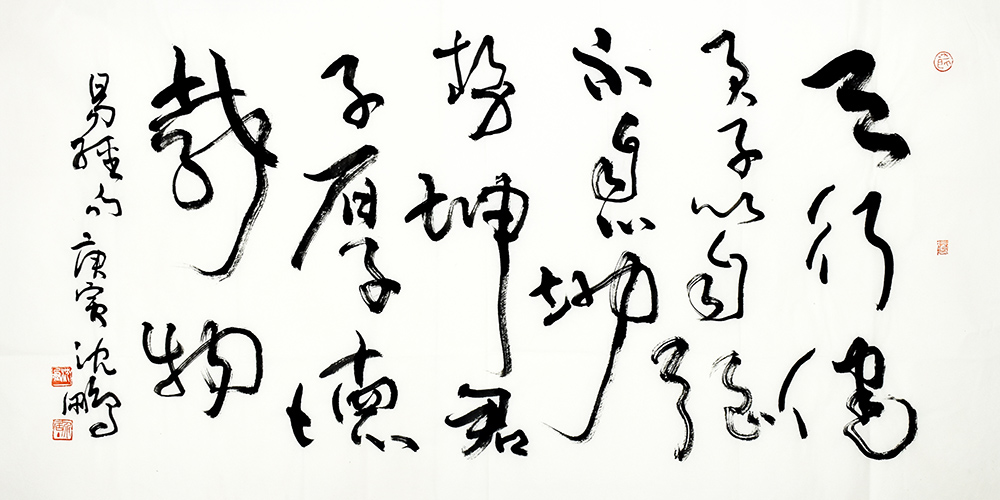 天行健
君子以自強
不息地
势坤君
子厚德
載物
易經句 庚寅 沈鵬